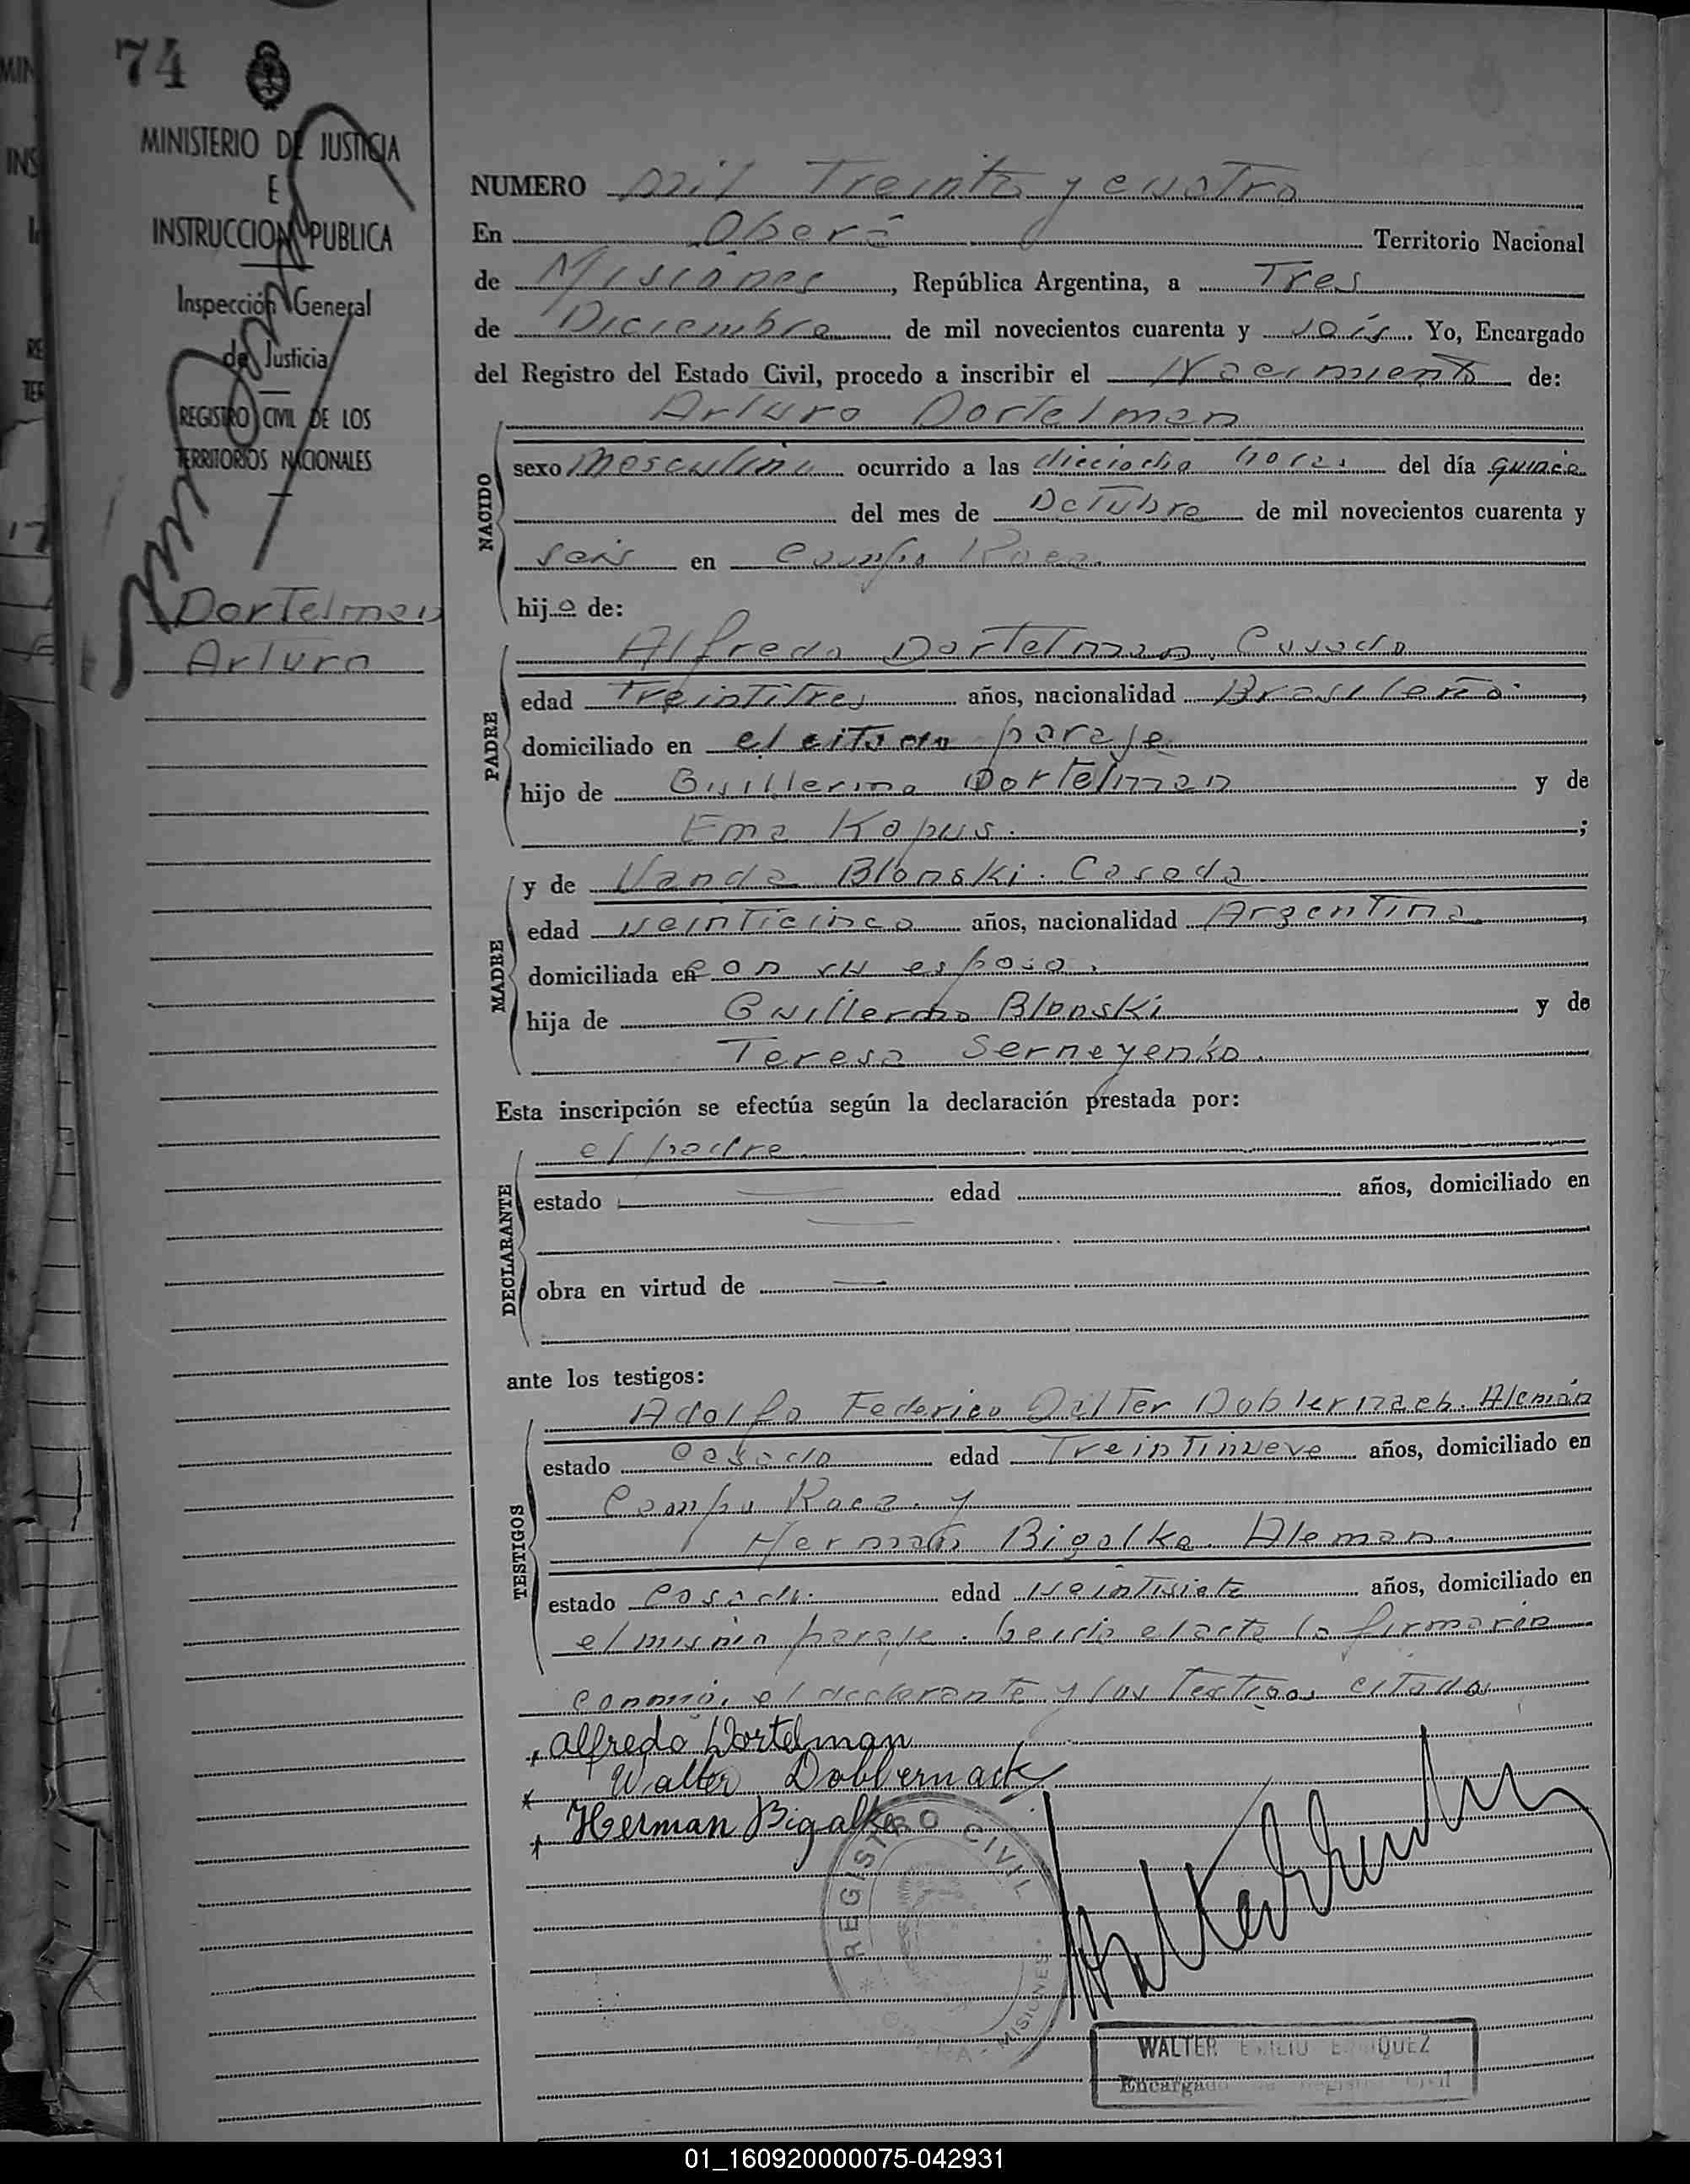 74
MINISTERIO DE JUSTICIA
E
INSTRUCCION PUBLICA
Inspección General
de Justicia
REGISTRO CIVIL DE LOS
TERRITORIOS NACIONALES
Dortelman
Arturo
NUMERO mil Treinta y cuatro
En Oberá Territorio Nacional
de Misiones, República Argentina, a Tres
de Diciembre de mil novecientos cuarenta y seis. Yo, Encargado
del Registro del Estado Civil, procedo a inscribir el Nacimiento de:
Arturo Dortelman
NACIDO
sexo Masculino ocurrido a las dieciocho horas del día quince
del mes de Octubre de mil novecientos cuarenta y
seis en Campo
hijo de:
PADRE
Alfredo Dortelman. Casado
edad Treintitres años, nacionalidad Brasileña.,
domiciliado en el citado paraje
hijo de Guillermo Dortelman y de
Ema Kopus.;
MADRE
y de Vanda Blonski. Casada
edad veinticinco años, nacionalidad Argentina,
domiciliada en con su esposo.
hija de Guillermo Blonski y de
Teresa Serneyenko.
Esta inscripción se efectúa según la declaración prestada por:
DECLARANTE
el padre
estado edad años, domiciliado en
obra en virtud de
ante los testigos:
TESTIGOS
Adolfo Federico Dobbernach. Alemán
estado casado edad Treintinueve años, domiciliado en
Campo y
Herman Bigalke. Aleman.
estado casado. edad veintisiete años, domiciliado en
el mismo paraje. Leida el acta la firmarón
conmigo, el declarante y los Testigos citados
Alfredo Dortelman
Walter Dobbernack
Herman Bigalke
REGISTRO CIVIL
MISIONES
WALTER EMILIO
Encargado de Registro Civil
01_160920000075-042931